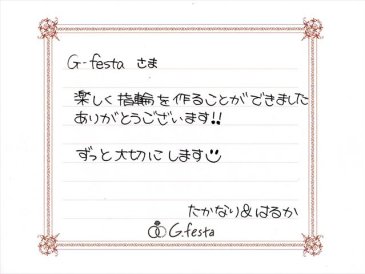 G-festa さま
楽しく指輪を作ることができました
ありがとうございます!!
ずっと大切にします
たかなり&はるか
G.festa